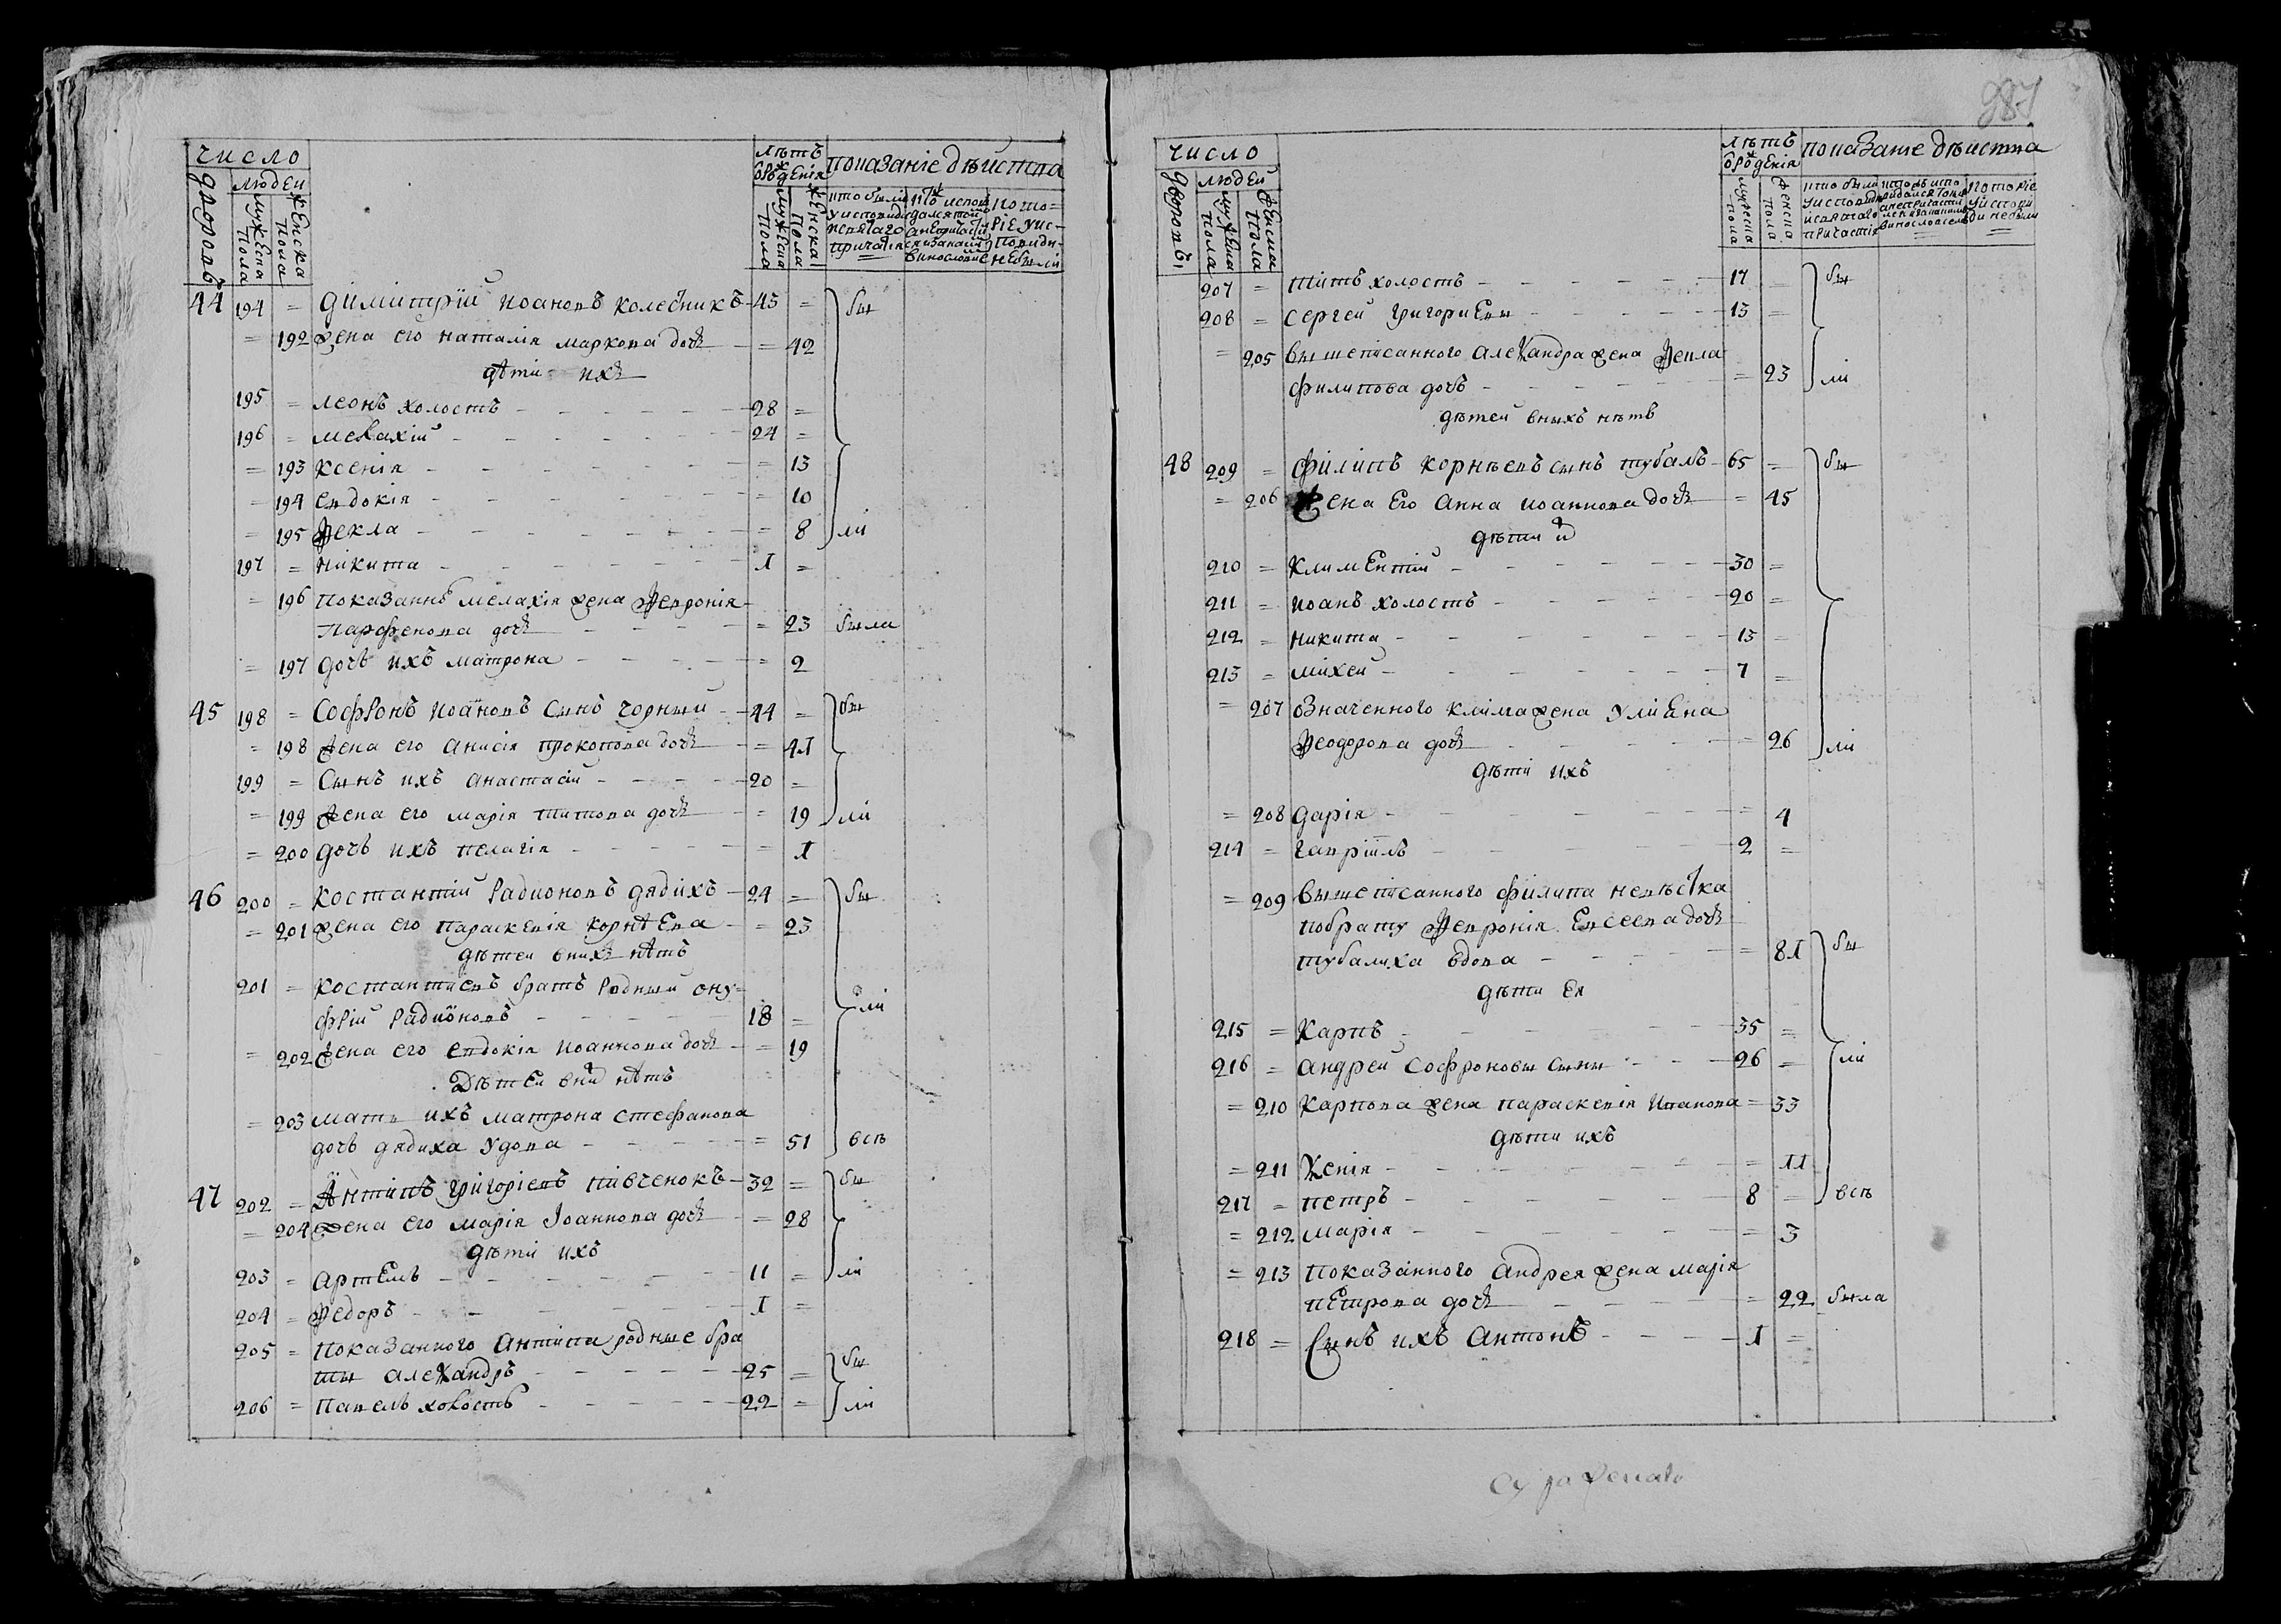 число
людей
дворовъ
мужеска пола
женска пола
лѣтъ
ѿ рожденія
мужеска пола
женска пола
показаніе дѣиства
44 194 = Димитрїй Иоановъ Колесникъ - 45 =
= 192 жена его Наталія Маркова дочь - = 42
дѣти ихъ
195 = Леонъ холостъ - 28 =
196 = Мелахій - 24 =
= 193 Ксенія - = 13
= 194 Евдокія - = 10
= 195 Ѳекла - = 8
197 = Никита - 1 =
= 196 показанн: Мелахія жена Ѳевронія
Парфенова дочь - = 23 была
= 197 дочь ихъ Матрона - = 2
были
45 198 = Софронъ Иоановъ сынъ Чорный - 44 =
= 198 жена его Анисія Прокопова дочь - = 41
199 = сынъ ихъ Анастасій - 20 =
= 199 жена его Марія Титова дочь - = 19
= 200 дочь ихъ Пелагія - = 1
были
46 200 = Костантій Радионовъ Дядихъ - 24 =
= 201 жена его Параскевія Корнѣева - = 23
дѣтей вних нѣтъ
201 = Костантиевъ братъ родный Ону-
фрій Радионовъ - 18 =
= 202 жена его Евдокія Иоаннова дочь - = 19
Дѣтей вних нѣтъ
= 203 мать ихъ Матрона Стефанова
дочь Дядиха удова - = 51
были всѣ
47 202 = Антипъ Григоріевъ Пивченокъ - 32 =
= 204 жена его Марія Іоаннова дочь - = 28
дѣти ихъ
203 = Артемъ - 11 =
204 = Ѳедоръ - 1 =
были
205 = показанного Антипа родные бра
ты Алеѯандръ - 25 =
206 = Павелъ холостъ - 22 =
были
987
число
людей
дворовъ
мужеска пола
женска пола
лѣтъ
ѿ рожденія
мужеска пола
женска пола
показаніе дѣиства
207 = Титъ холостъ - 17 =
208 = Сергей Григориевы - 13 =
= 205 вышеписанного Алеѯандра жена Ѳекла
Филипова дочь - = 23
дѣтей вныхъ нѣтъ
были
48 209 = Филипъ Корнѣевъ сынъ Тубалъ - 65 =
= 206 жена его Анна Иоаннова дочь = 45
дѣти их
210 = Климентій - 30 =
211 = Иоанъ холостъ - 20 =
212 = Никита - 13 =
213 = Михей - 7 =
= 207 означенного Клима жена Улиена
Ѳеодорова дочь - = 26
дѣти ихъ
были
= 208 Дарія - = 4
214 = Гавріилъ - 2 =
= 209 вышеписанного Филипа невѣстка
побрату Ѳевронія Евсеева дочь
Тубалиха вдова - = 81
дѣти ея
215 = Карпъ - 35 =
216 = Андрей Софроновы сыны - 26 =
= 210 Карпова жена Параскевія Иванова = 33
дѣти ихъ
= 211 Ѯенія - = 11
217 = Петръ - 8 =
были всѣ
= 212 Марія - = 3
= 213 показанного Андрея жена Марія
Петрова дочь - = 22 была
218 = сынъ ихъ Антонъ - 1 =